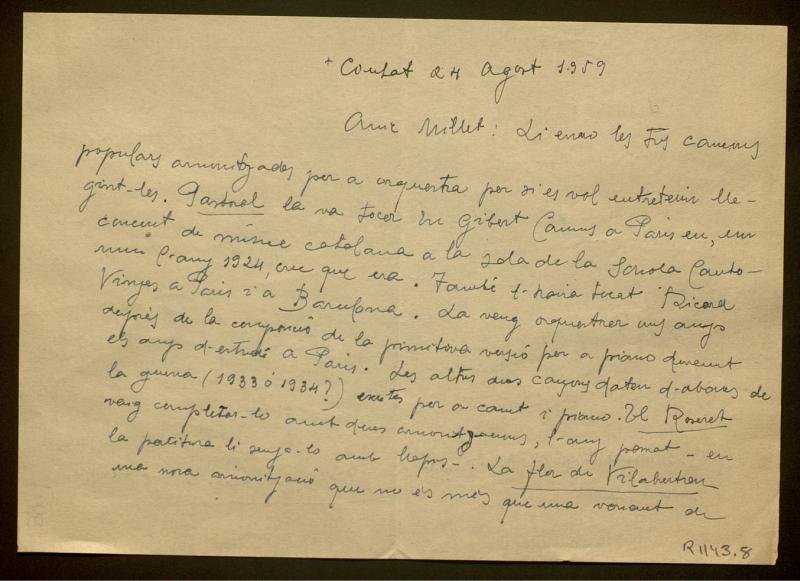 + Conflat 24 Agost 1959
Amic Millet: Li envio les tres cançons
populars armonitzades per a orquestra per si es vol entretenir lle-
gint-les. Pastoral la va tocar En Gibert Camins a Paris en, un
concert de música catalana a la sala de la Schola Canto-
rum l'any 1924, crec que era. També l'havia tocat Ricard
Vinyes a Paris i a Barcelona. La vaig orquestrar uns anys
després de la composició de la primitiva versió per a piano durant
els anys d'estudi a Paris. Les altres dues cançons daten d'abans de
la guerra (1933 ó 1934?) escrites per a cant i piano. El Roseret
vaig completar-lo amb dues armonitzacions, l'any passat - en
la partitura li senyalo amb llapis -. La flor de Vilabertran
una nova armonització que no és més que una variant de
R1143.8